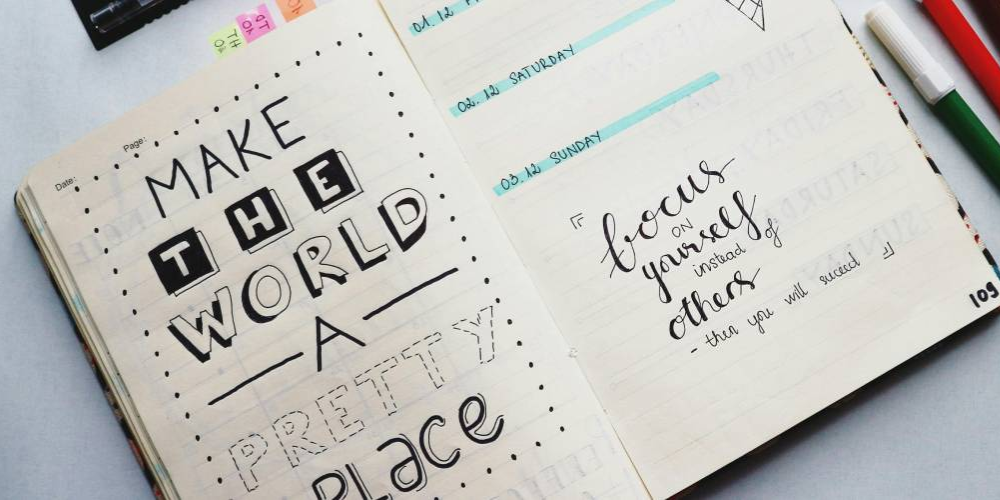 Page:
Date:
MAKE
THE
WORLD
A
PRETTY
place
01.12
02.12 SATURDAY
03.12 SUNDAY
「focus
ON
yourself
instead of
others
- then you will suceed」
109